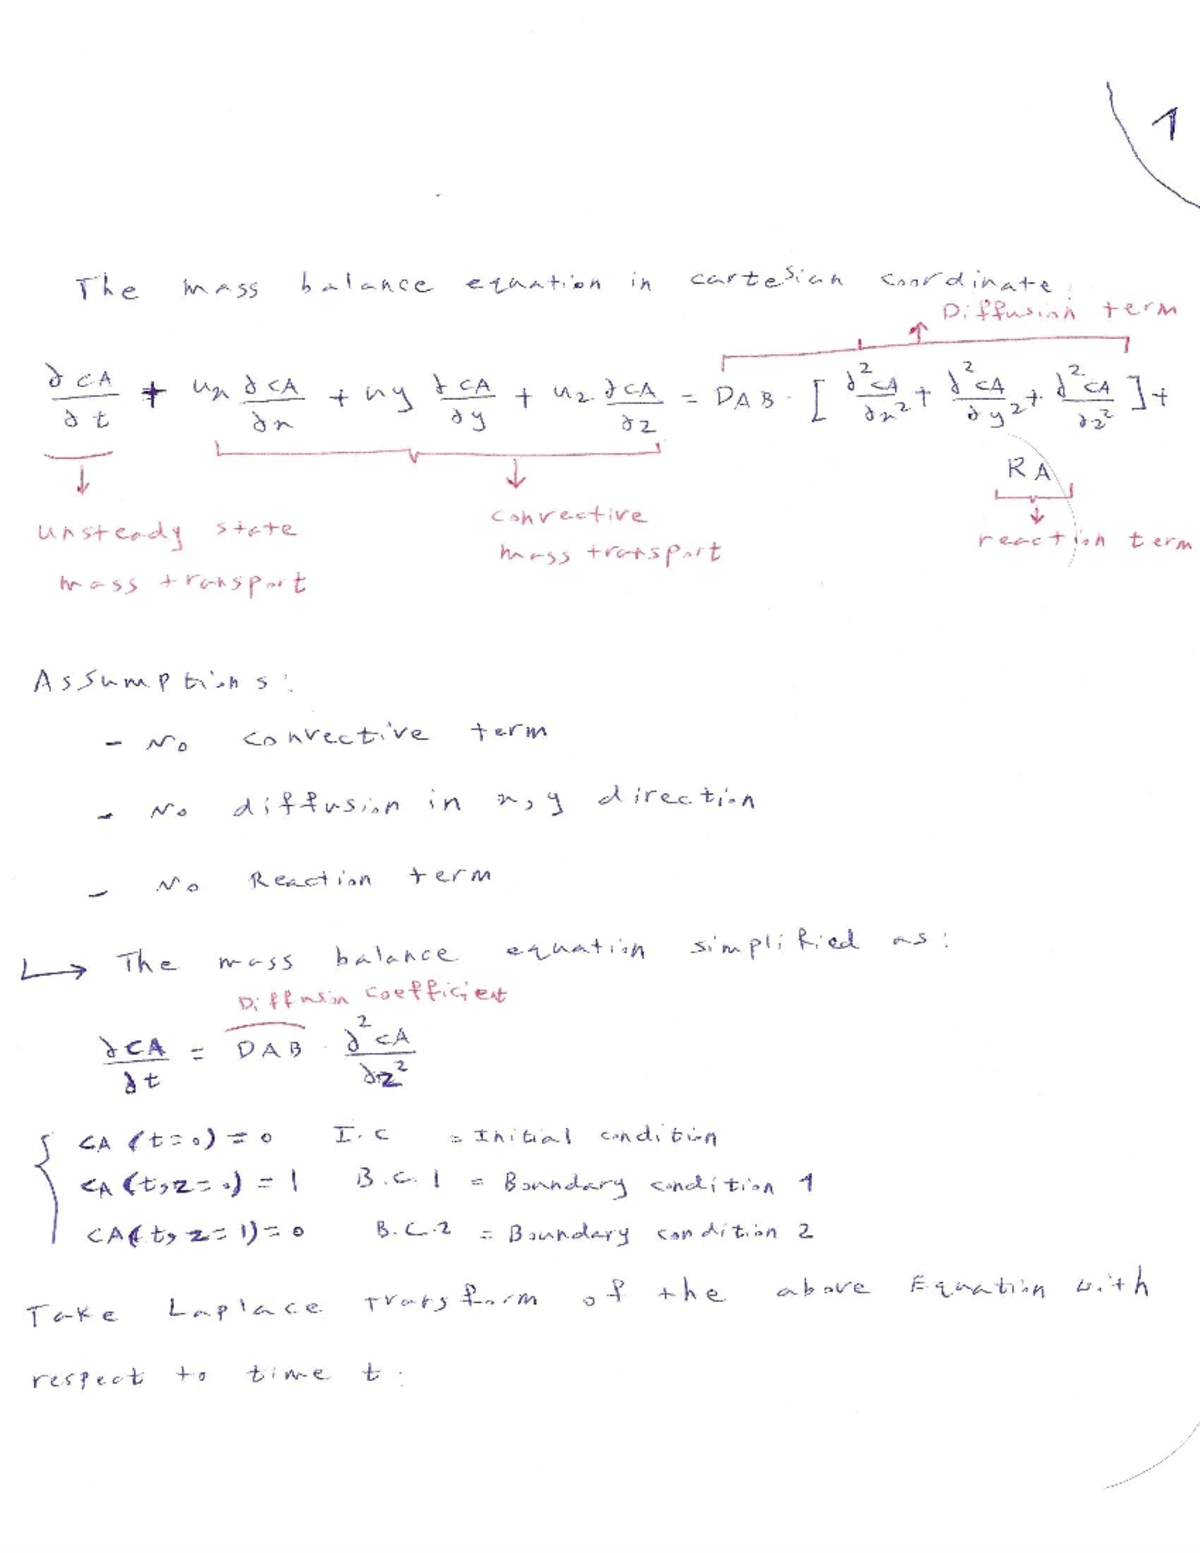 1
The mass balance equation in cartesian coordinate:
Diffusion term
∂CA/∂t + ux ∂CA/∂x + uy ∂CA/∂y + uz ∂CA/∂z = DAB · [∂²CA/∂x² + ∂²CA/∂y² + ∂²CA/∂z²] +
RA
unsteady state
mass transport
convective
mass transport
reaction term
Assumptions:
- No convective term
- No diffusion in x, y direction
- No Reaction term
↳ The mass balance equation simplified as:
Diffusion coefficient
∂CA/∂t = DAB · ∂²CA/∂z²
CA (t=0) = 0 I.C = Initial condition
CA (t, z=0) = 1 B.C.1 = Boundary condition 1
CA (t, z=1) = 0 B.C.2 = Boundary condition 2
Take Laplace transform of the above Equation with
respect to time t: